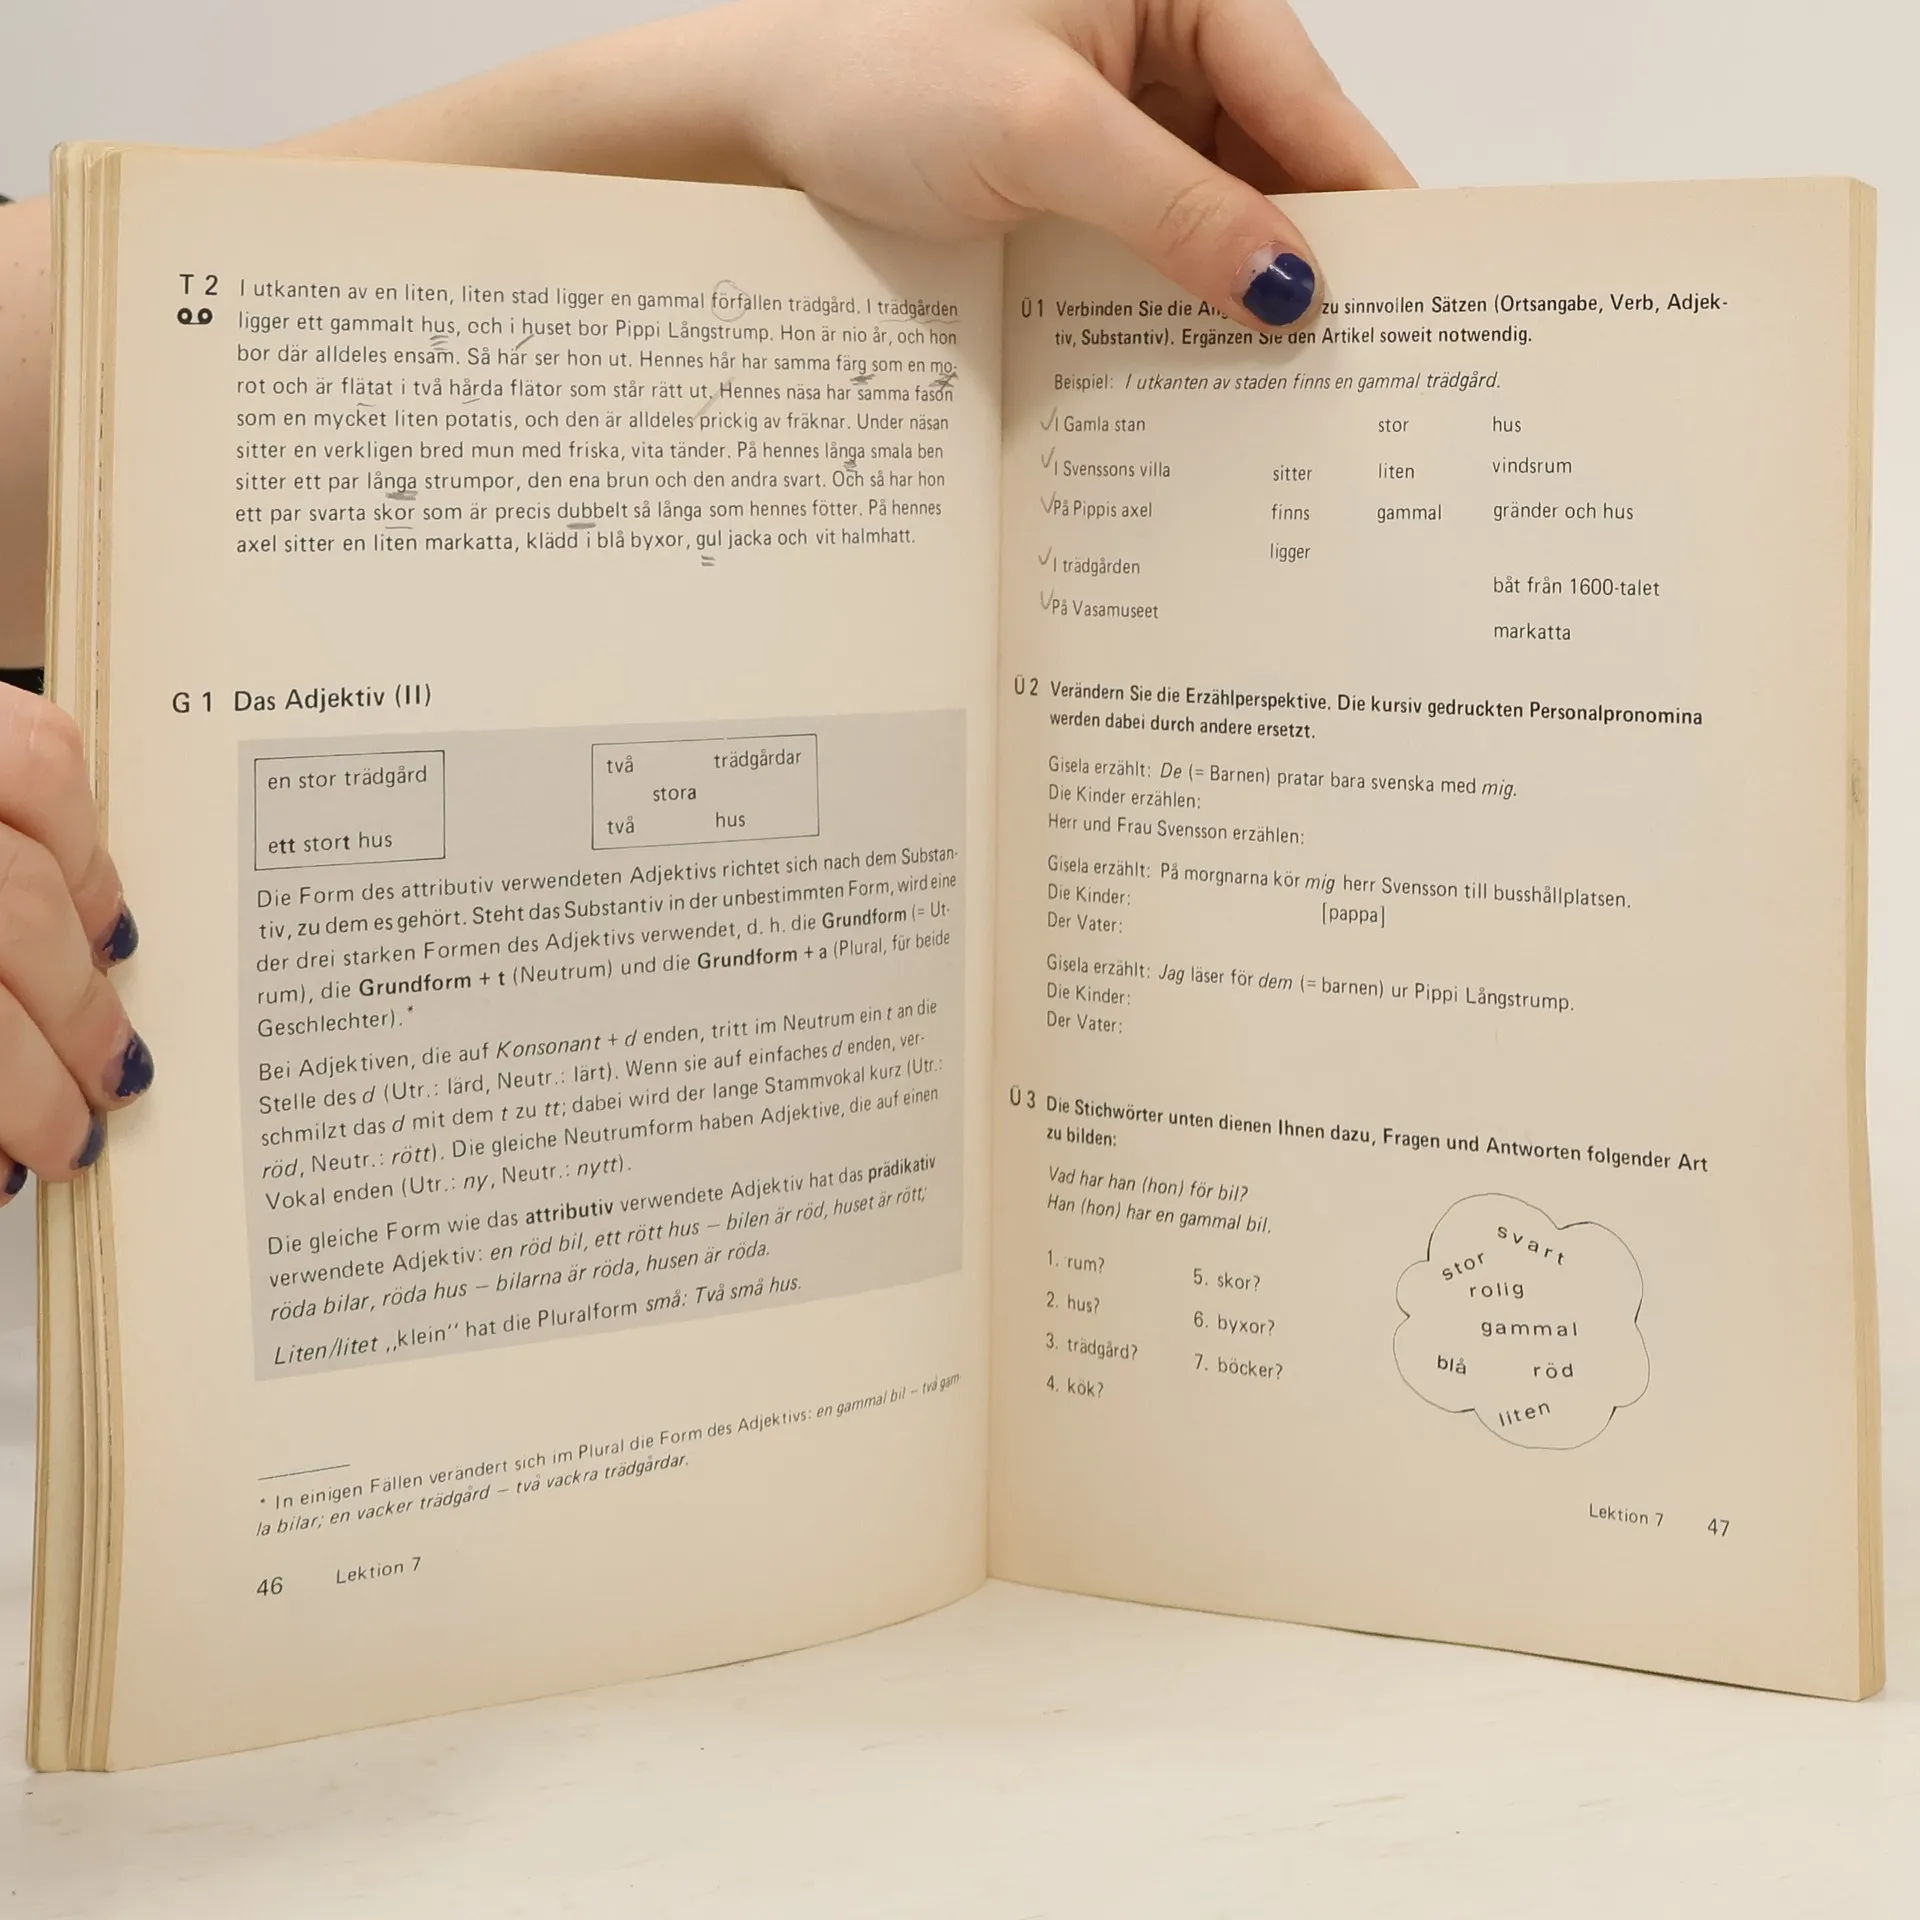 T 2 I utkanten av en liten, liten stad ligger en gammal förfallen trädgård. I trädgården
ligger ett gammalt hus, och i huset bor Pippi Långstrump. Hon är nio år, och hon
bor där alldeles ensam. Så här ser hon ut. Hennes hår har samma färg som en mo-
rot och är flätat i två hårda flätor som står rätt ut. Hennes näsa har samma fason
som en mycket liten potatis, och den är alldeles prickig av fräknar. Under näsan
sitter en verkligen bred mun med friska, vita tänder. På hennes långa smala ben
sitter ett par långa strumpor, den ena brun och den andra svart. Och så har hon
ett par svarta skor som är precis dubbelt så långa som hennes fötter. På hennes
axel sitter en liten markatta, klädd i blå byxor, gul jacka och vit halmhatt.
G 1 Das Adjektiv (II)
en stor trädgård
ett stort hus
två trädgårdar
stora
två hus
Die Form des attributiv verwendeten Adjektivs richtet sich nach dem Substan-
tiv, zu dem es gehört. Steht das Substantiv in der unbestimmten Form, wird eine
der drei starken Formen des Adjektivs verwendet, d. h. die Grundform (= Ut-
rum), die Grundform + t (Neutrum) und die Grundform + a (Plural, für beide
Geschlechter).*
Bei Adjektiven, die auf Konsonant + d enden, tritt im Neutrum ein t an die
Stelle des d (Utr.: lärd, Neutr.: lärt). Wenn sie auf einfaches d enden, ver-
schmilzt das d mit dem t zu tt; dabei wird der lange Stammvokal kurz (Utr.:
röd, Neutr.: rött). Die gleiche Neutrumform haben Adjektive, die auf einen
Vokal enden (Utr.: ny, Neutr.: nytt).
Die gleiche Form wie das attributiv verwendete Adjektiv hat das prädikativ
verwendete Adjektiv: en röd bil, ett rött hus – bilen är röd, huset är rött;
röda bilar, röda hus – bilarna är röda, husen är röda.
Liten/litet „klein“ hat die Pluralform små: Två små hus.
* In einigen Fällen verändert sich im Plural die Form des Adjektivs: en gammal bil – två gam-
la bilar; en vacker trädgård – två vackra trädgårdar.
46 Lektion 7
Ü 1 Verbinden Sie die zu sinnvollen Sätzen (Ortsangabe, Verb, Adjek-
tiv, Substantiv). Ergänzen Sie den Artikel soweit notwendig.
Beispiel: I utkanten av staden finns en gammal trädgård.
I Gamla stan stor hus
I Svenssons villa sitter liten vindsrum
På Pippis axel finns gammal gränder och hus
ligger
I trädgården båt från 1600-talet
På Vasamuseet markatta
Ü 2 Verändern Sie die Erzählperspektive. Die kursiv gedruckten Personalpronomina
werden dabei durch andere ersetzt.
Gisela erzählt: De (= Barnen) pratar bara svenska med mig.
Die Kinder erzählen:
Herr und Frau Svensson erzählen:
Gisela erzählt: På morgnarna kör mig herr Svensson till busshållplatsen.
Die Kinder: [pappa]
Der Vater:
Gisela erzählt: Jag läser för dem (= barnen) ur Pippi Långstrump.
Die Kinder:
Der Vater:
Ü 3 Die Stichwörter unten dienen Ihnen dazu, Fragen und Antworten folgender Art
zu bilden:
Vad har han (hon) för bil?
Han (hon) har en gammal bil.
1. rum?
2. hus?
3. trädgård?
4. kök?
5. skor?
6. byxor?
7. böcker?
svart
stor
rolig
gammal
blå röd
liten
Lektion 7 47